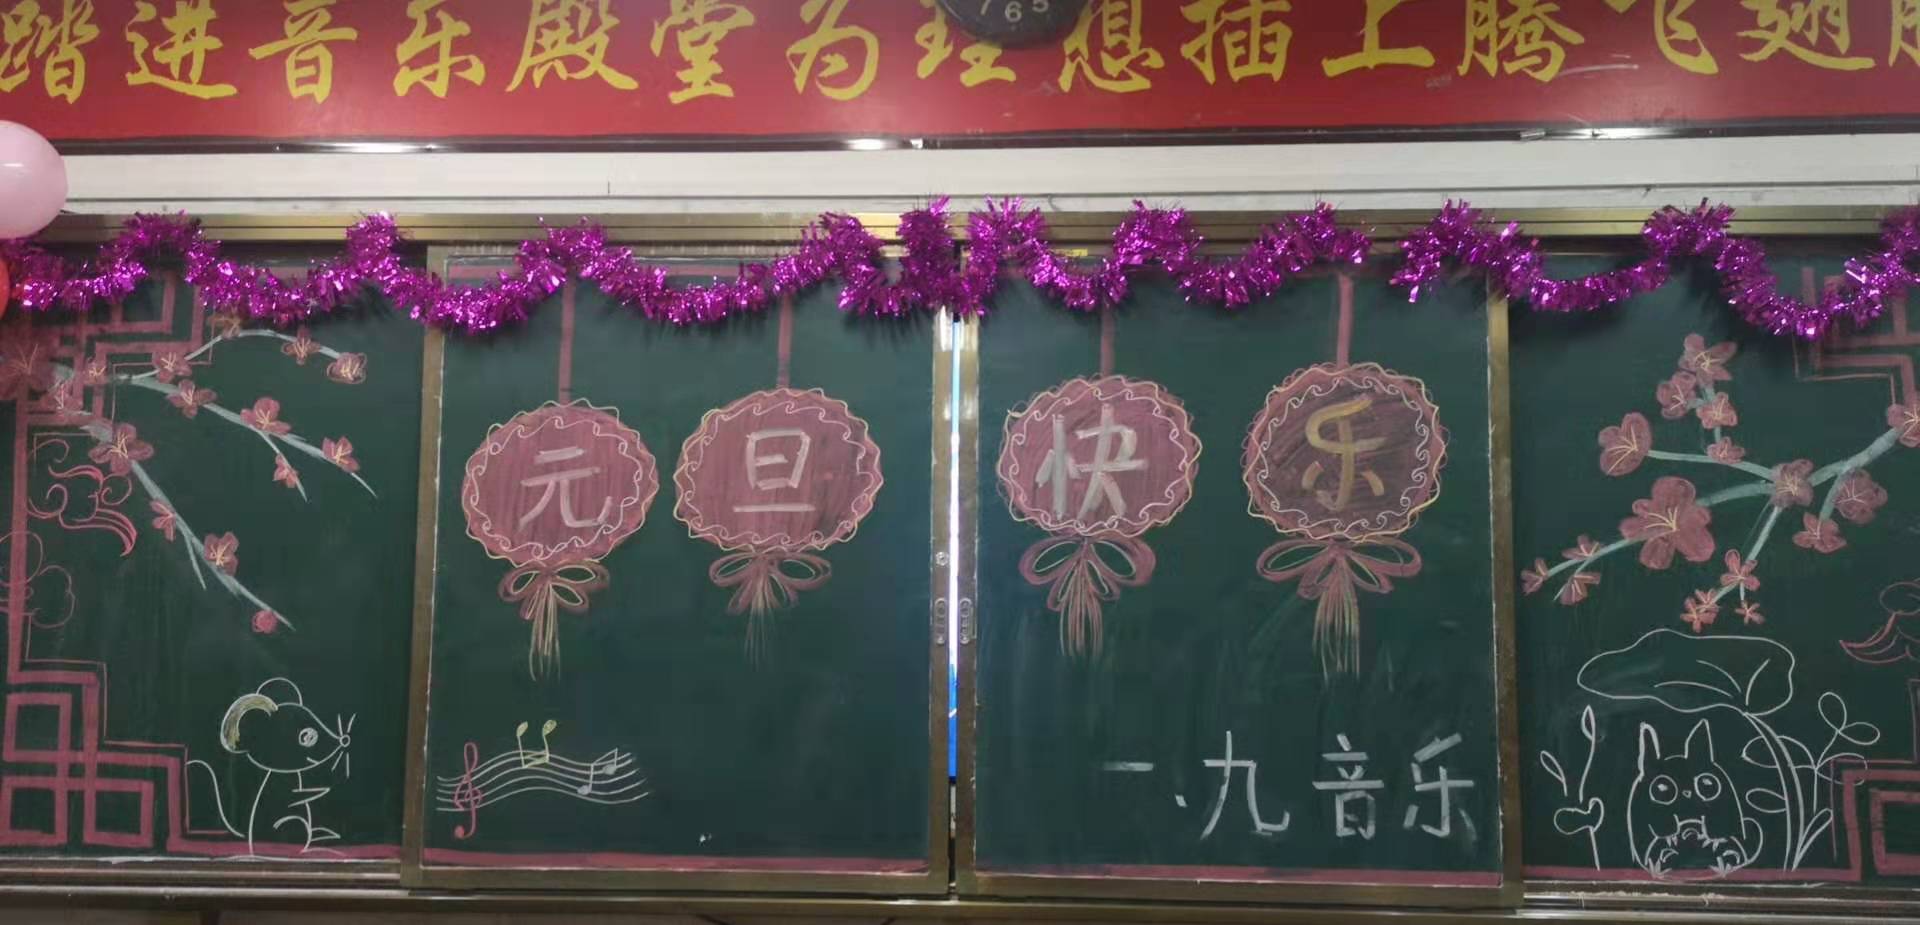 踏进音乐殿堂为理想插上腾飞翅
7 6 5
元旦快乐
一.九音乐